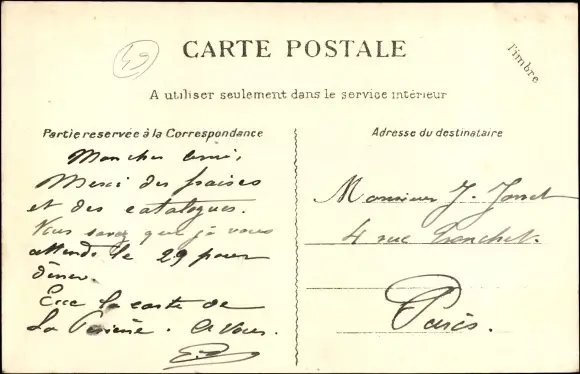 49
CARTE POSTALE
Timbre
A utiliser seulement dans le service intérieur
Partie reservée à la Correspondance
Adresse du destinataire
Mon cher ami,
Merci des fraises
et des catalogues.
Vous savez que je vous
attends le 29 pour
dîner.
la carte de
La. A vous.
Monsieur J.
4 rue Tronchet.
Paris.